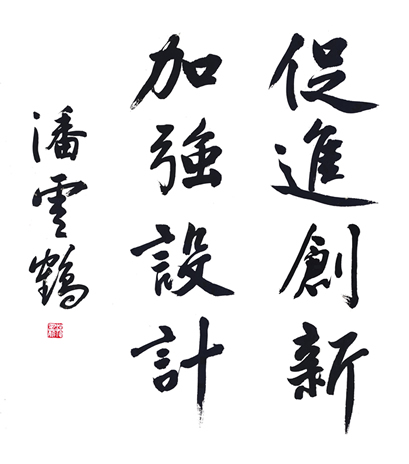 促進創新
加強設計
潘雲鶴